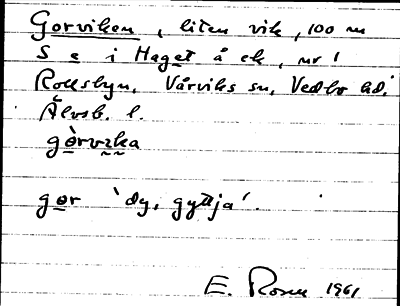 Gorviken, liten vik, 100 m
S e i Haget å ek, nr 1
Rollsbyn, Vårviks sn, Vedbo hd.
Älvsb. l.
gòrvıka
gor 'dy, gyttja'.
E. Rosen 1961